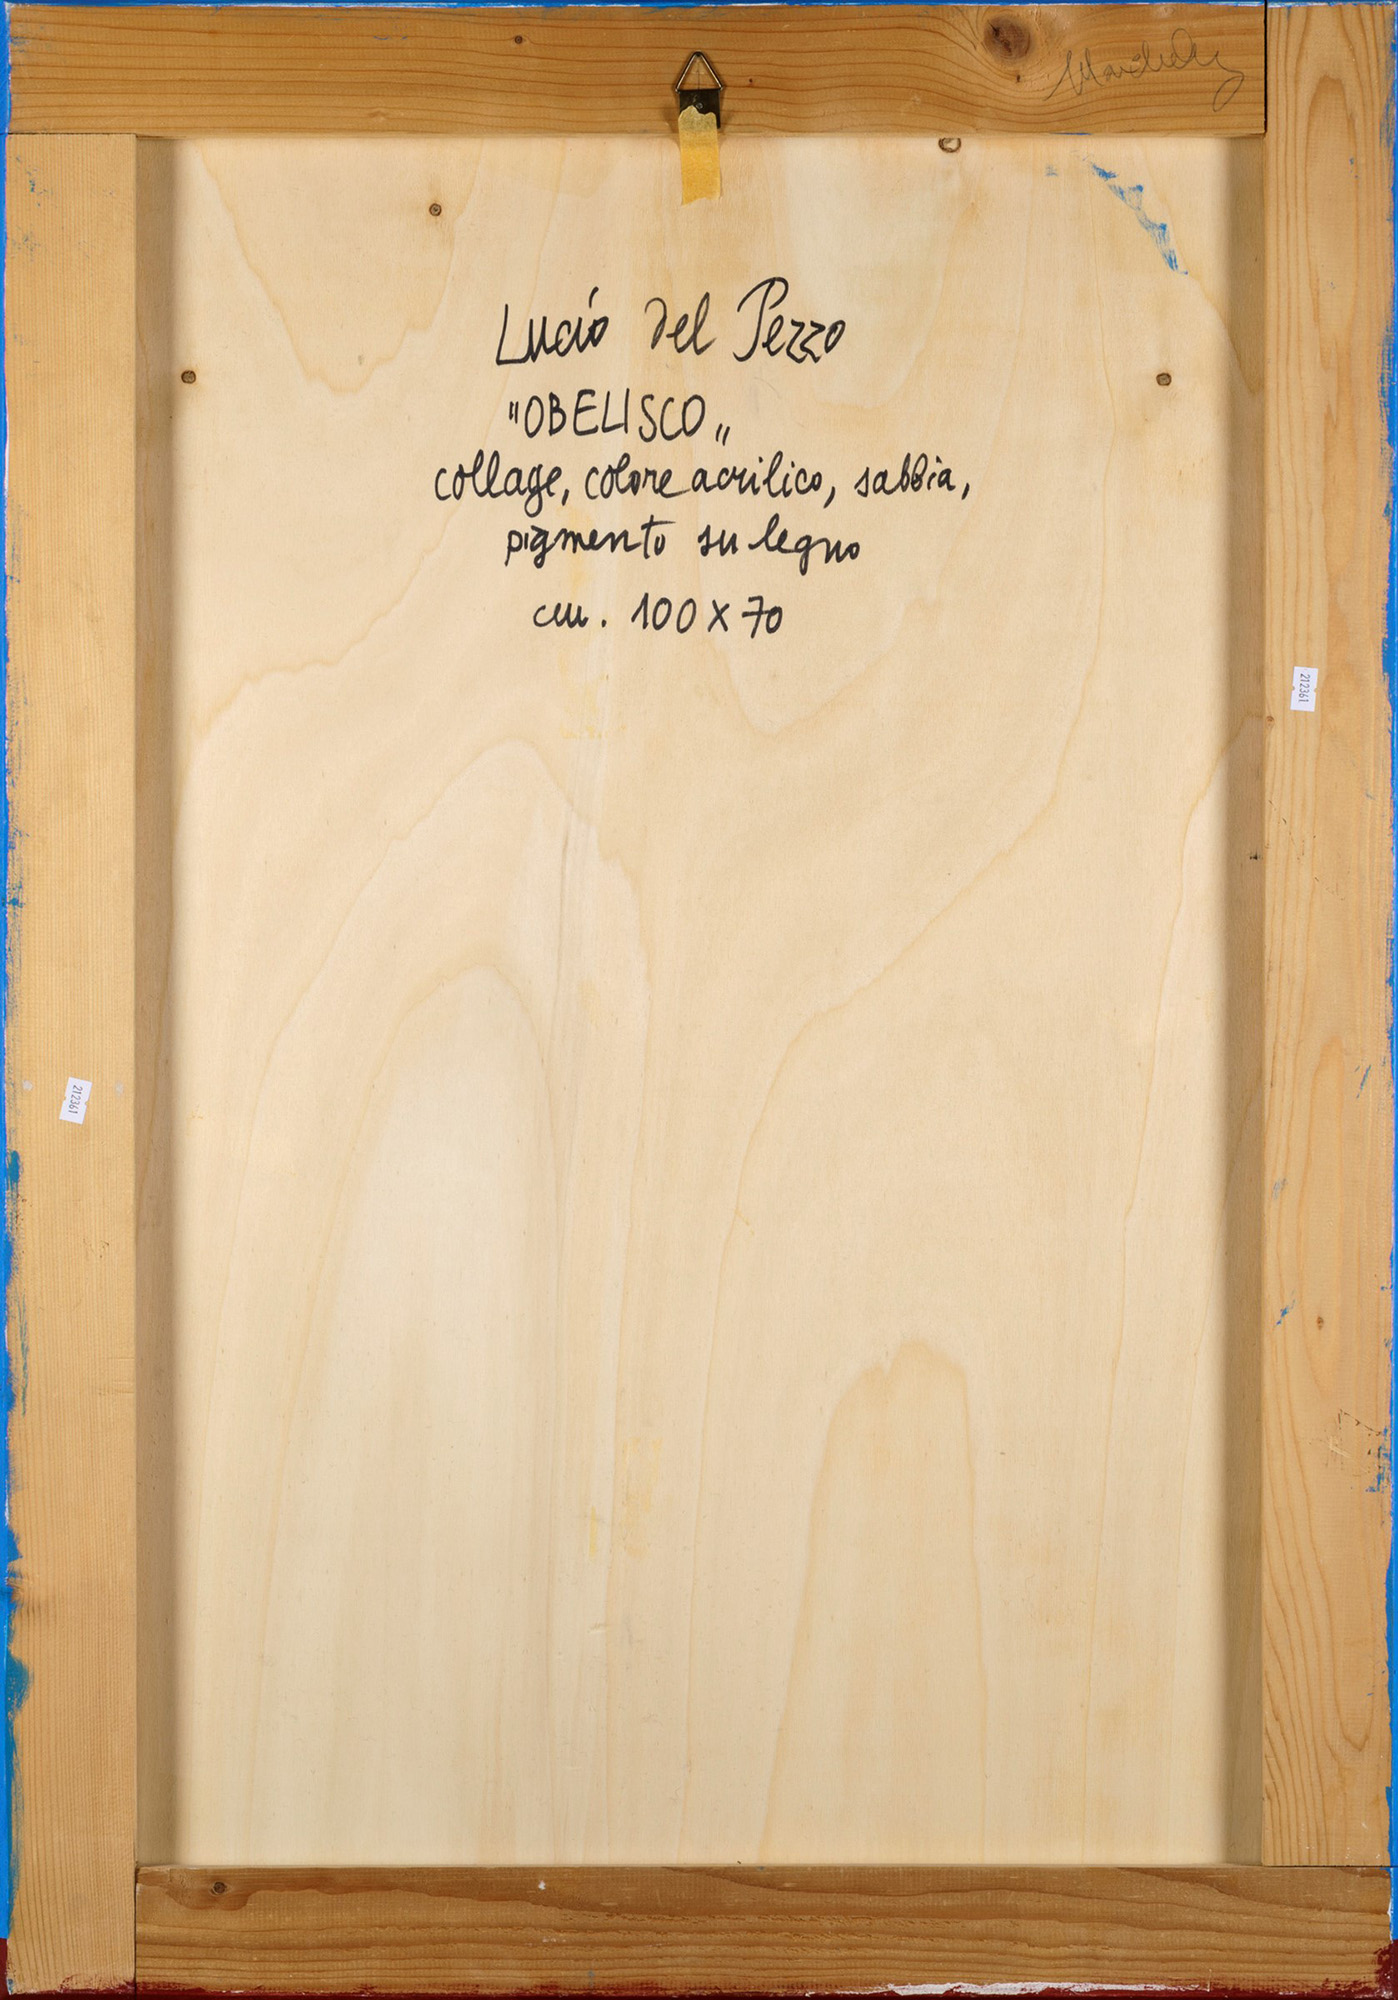 Lucio del Pezzo
"OBELISCO„
collage, colore acrilico, sabbia,
pigmento su legno
cm. 100 x 70
212361
212361